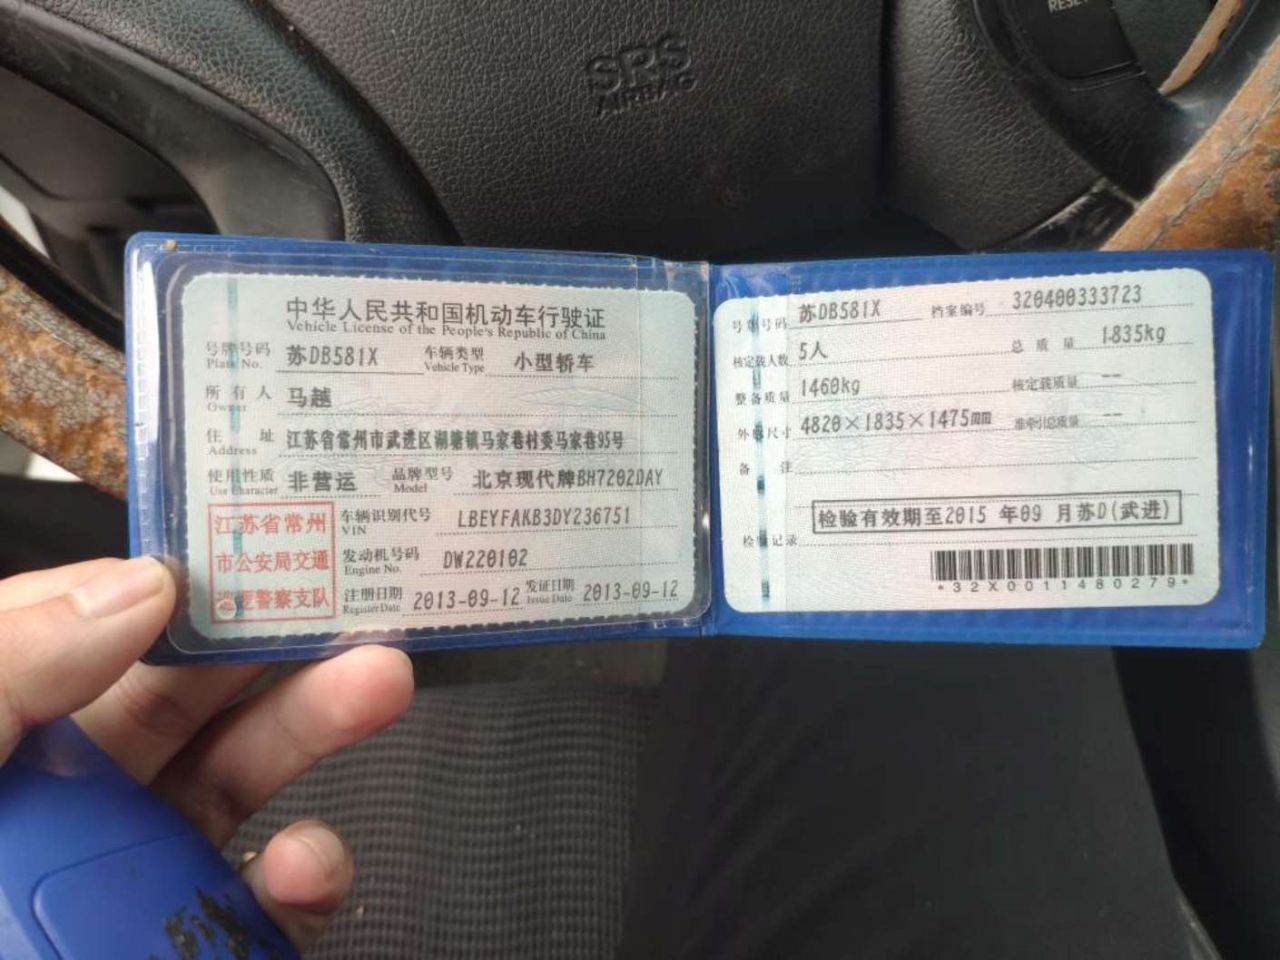 RESET
SRS
AIRBAG
中华人民共和国机动车行驶证
Vehicle License of the People's Republic of China
号牌号码 苏DB581X 车辆类型 小型轿车
Plate No. Vehicle Type
所有人 马越
Owner
住址 江苏省常州市武进区湖塘镇马家巷村委马家巷95号
Address
使用性质 非营运 品牌型号 北京现代牌BH7202DAY
Use Character Model
江苏省常州
市公安局交通
巡逻警察支队
车辆识别代号 LBEYFAKB3DY236751
VIN
发动机号码 DW220102
Engine No.
注册日期 2013-09-12 发证日期 2013-09-12
Register Date Issue Date
号牌号码 苏DB581X 档案编号 320400333723
核定载人数 5人 总质量 1835kg
整备质量 1460kg 核定载质量 --
外廓尺寸 4820×1835×1475mm 准牵引总质量 --
备注
检验有效期至2015 年09 月苏D(武进)
检验记录
*32X0011480279*